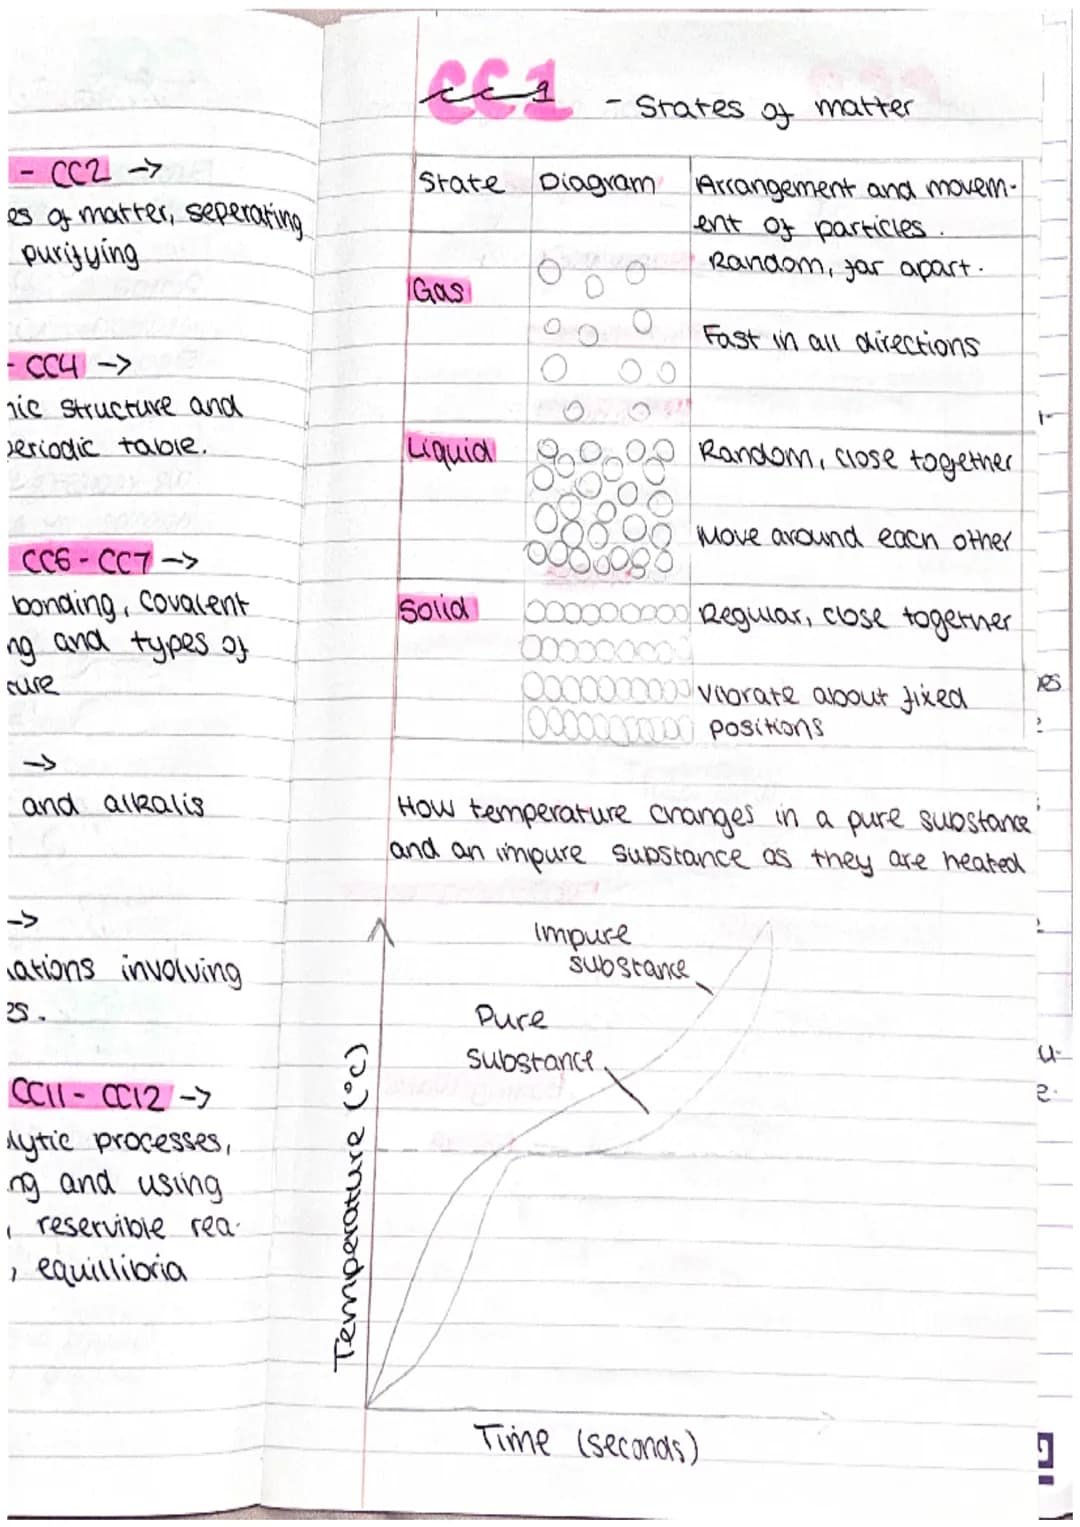 - CC2 ->
es of matter, seperating
purifying
- CC4 ->
nic structure and
periodic table.
CC6 - CC7 ->
bonding, Covalent
ng and types of
ture
->
and alkalis
->
lations involving
es.
CC11 - CC12 ->
lytic processes,
ng and using
reservible rea-
, equillibria
CC1 - States of matter
State Diagram Arrangement and movem-
ent of particles.
Gas Random, far apart.
Fast in all directions
Liquid Random, close together
Move around each other
Solid Regular, close together
Vibrate about fixed
positions
How temperature changes in a pure substance
and an impure substance as they are heated
Impure
substance
Pure
substance
Temperature (°C)
Time (seconds)